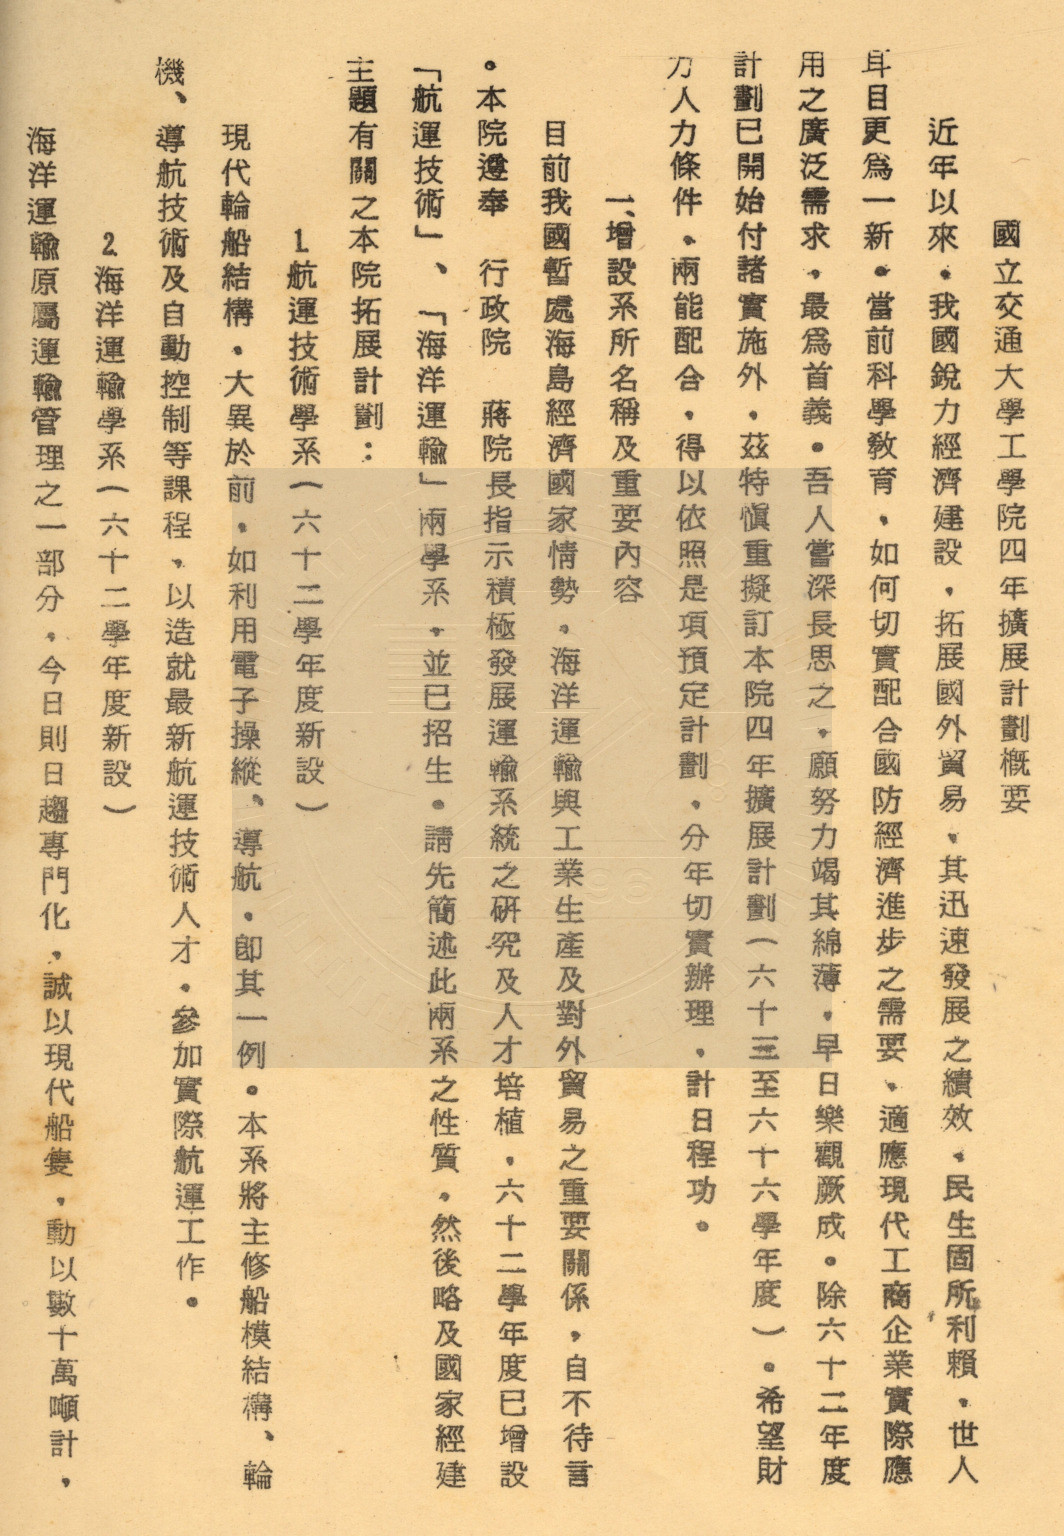 國立交通大學工學院四年擴展計劃概要
近年以來，我國銳力經濟建設，拓展國外貿易，其迅速發展之績效，民生固所利賴，世人
耳目更爲一新。當前科學敎育，如何切實配合國防經濟進步之需要，適應現代工商企業實際應
用之廣泛需求，最爲首義。吾人嘗深長思之，願努力竭其綿薄，早日樂觀厥成。除六十二年度
計劃已開始付諸實施外，茲特愼重擬訂本院四年擴展計劃（六十三至六十六學年度）。希望財
力人力條件，兩能配合，得以依照是項預定計劃，分年切實辦理，計日程功。
一、增設系所名稱及重要內容
目前我國暫處海島經濟國家情勢，海洋運輸與工業生產及對外貿易之重要關係，自不待言
。本院遵奉　行政院　蔣院長指示積極發展運輸系統之研究及人才培植，六十二學年度已增設
「航運技術」、「海洋運輸」兩學系，並已招生。請先簡述此兩系之性質，然後略及國家經建
主題有關之本院拓展計劃：
1.航運技術學系（六十二學年度新設）
現代輪船結構，大異於前，如利用電子操縱、導航，卽其一例。本系將主修船模結構、輪
機、導航技術及自動控制等課程，以造就最新航運技術人才，參加實際航運工作。
2.海洋運輸學系（六十二學年度新設）
海洋運輸原屬運輸管理之一部分，今日則日趨專門化，誠以現代船隻，動以數十萬噸計，